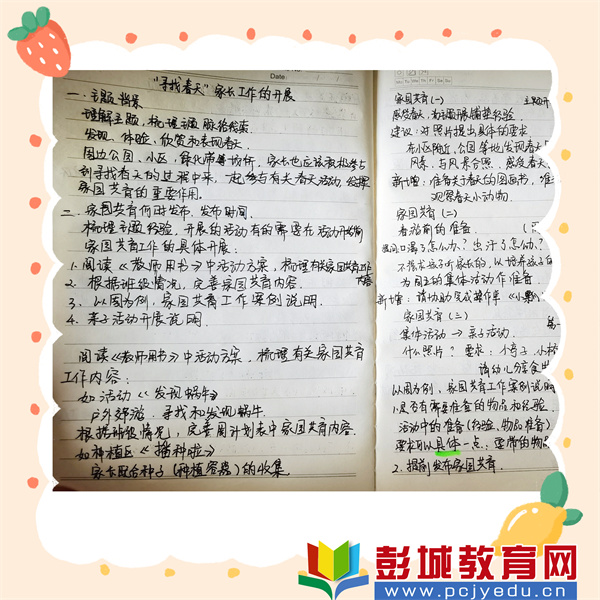 Date
“寻找春天”家长工作的开展
一、主题背景
理解主题，梳理主题脉络线索
发现、体验、欣赏和表现春天
周边公园、小区，绿化带等场所，家长也应该积极参与
到寻找春天的过程中来，一起参与有关春天活动，发挥
家园共育的重要作用。
二、家园共育何时发布、发布时间.
梳理主题经验，开展的活动有的需要在活动开始前
家园共育工作的具体开展.
1. 阅读《教师用书》中活动方案，梳理有关家园共育工作
内容
2. 根据班级情况，完善家园共育内容.
3. 以园为例，家园共育工作案例说明.
4. 亲子活动开展说明.
阅读《教师用书》中活动方案，梳理有关家园共育
工作内容：
如活动《发现蜗牛》
户外郊游，寻找和发现蜗牛.
根据班级情况，完善周计划表中家园共育内容.
如种植区《播种啦》
家长配合种子（种植容器）的收集
家园共育（一）
感受春天，为主题开展铺垫经验.
建议：对照片提出具体的要求
在小区附近、公园等地发现春天
风景，与风景合照，感受春天
新增：准备关于春天的图画书，准
观察春天小动物.
家园共育（二）
春游前的准备.
口渴了怎么办？出汗了怎么办？
为园主的集体活动作准备.
新增：请协助完成操作单《小
家园共育（三）
集体活动 → 亲子活动.
什么照片？要求：小亭子，小桥
请幼儿分享食
以园为例，家园共育工作案例说明
1. 是否有需要准备的物品和经验.
活动中的准备（经验、物品准备）
要求可以具体一点：要带的物品
2. 提前发布家园共育.
彭城教育网
www.pcjyedu.cn